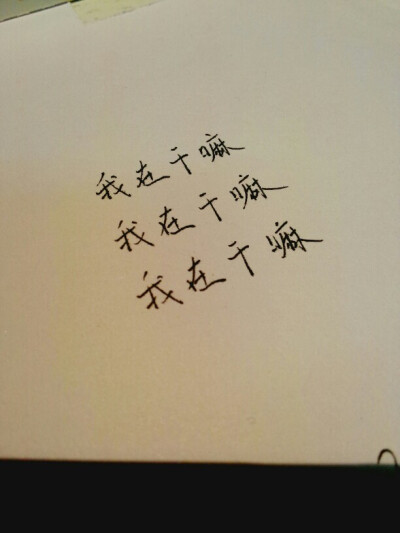 我在干嘛
我在干嘛
我在干嘛